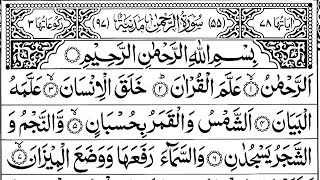 اٰیَاتُهَا ٧٨ (٥٥) سُوْرَةُ الرَّحْمٰنِ مَدَنِیَّةٌ (٩٧) رُكُوْعَاتُهَا ٣
بِسْمِ اللّٰهِ الرَّحْمٰنِ الرَّحِیْمِ
اَلرَّحْمٰنُ ۝١ عَلَّمَ الْقُرْاٰنَ ۝٢ خَلَقَ الْاِنْسَانَ ۝٣ عَلَّمَهُ
الْبَیَانَ ۝٤ اَلشَّمْسُ وَ الْقَمَرُ بِحُسْبَانٍ ۝٥ وَّ النَّجْمُ وَ
الشَّجَرُ یَسْجُدٰنِ ۝٦ وَ السَّمَآءَ رَفَعَهَا وَ وَضَعَ الْمِیْزَانَ ۝٧